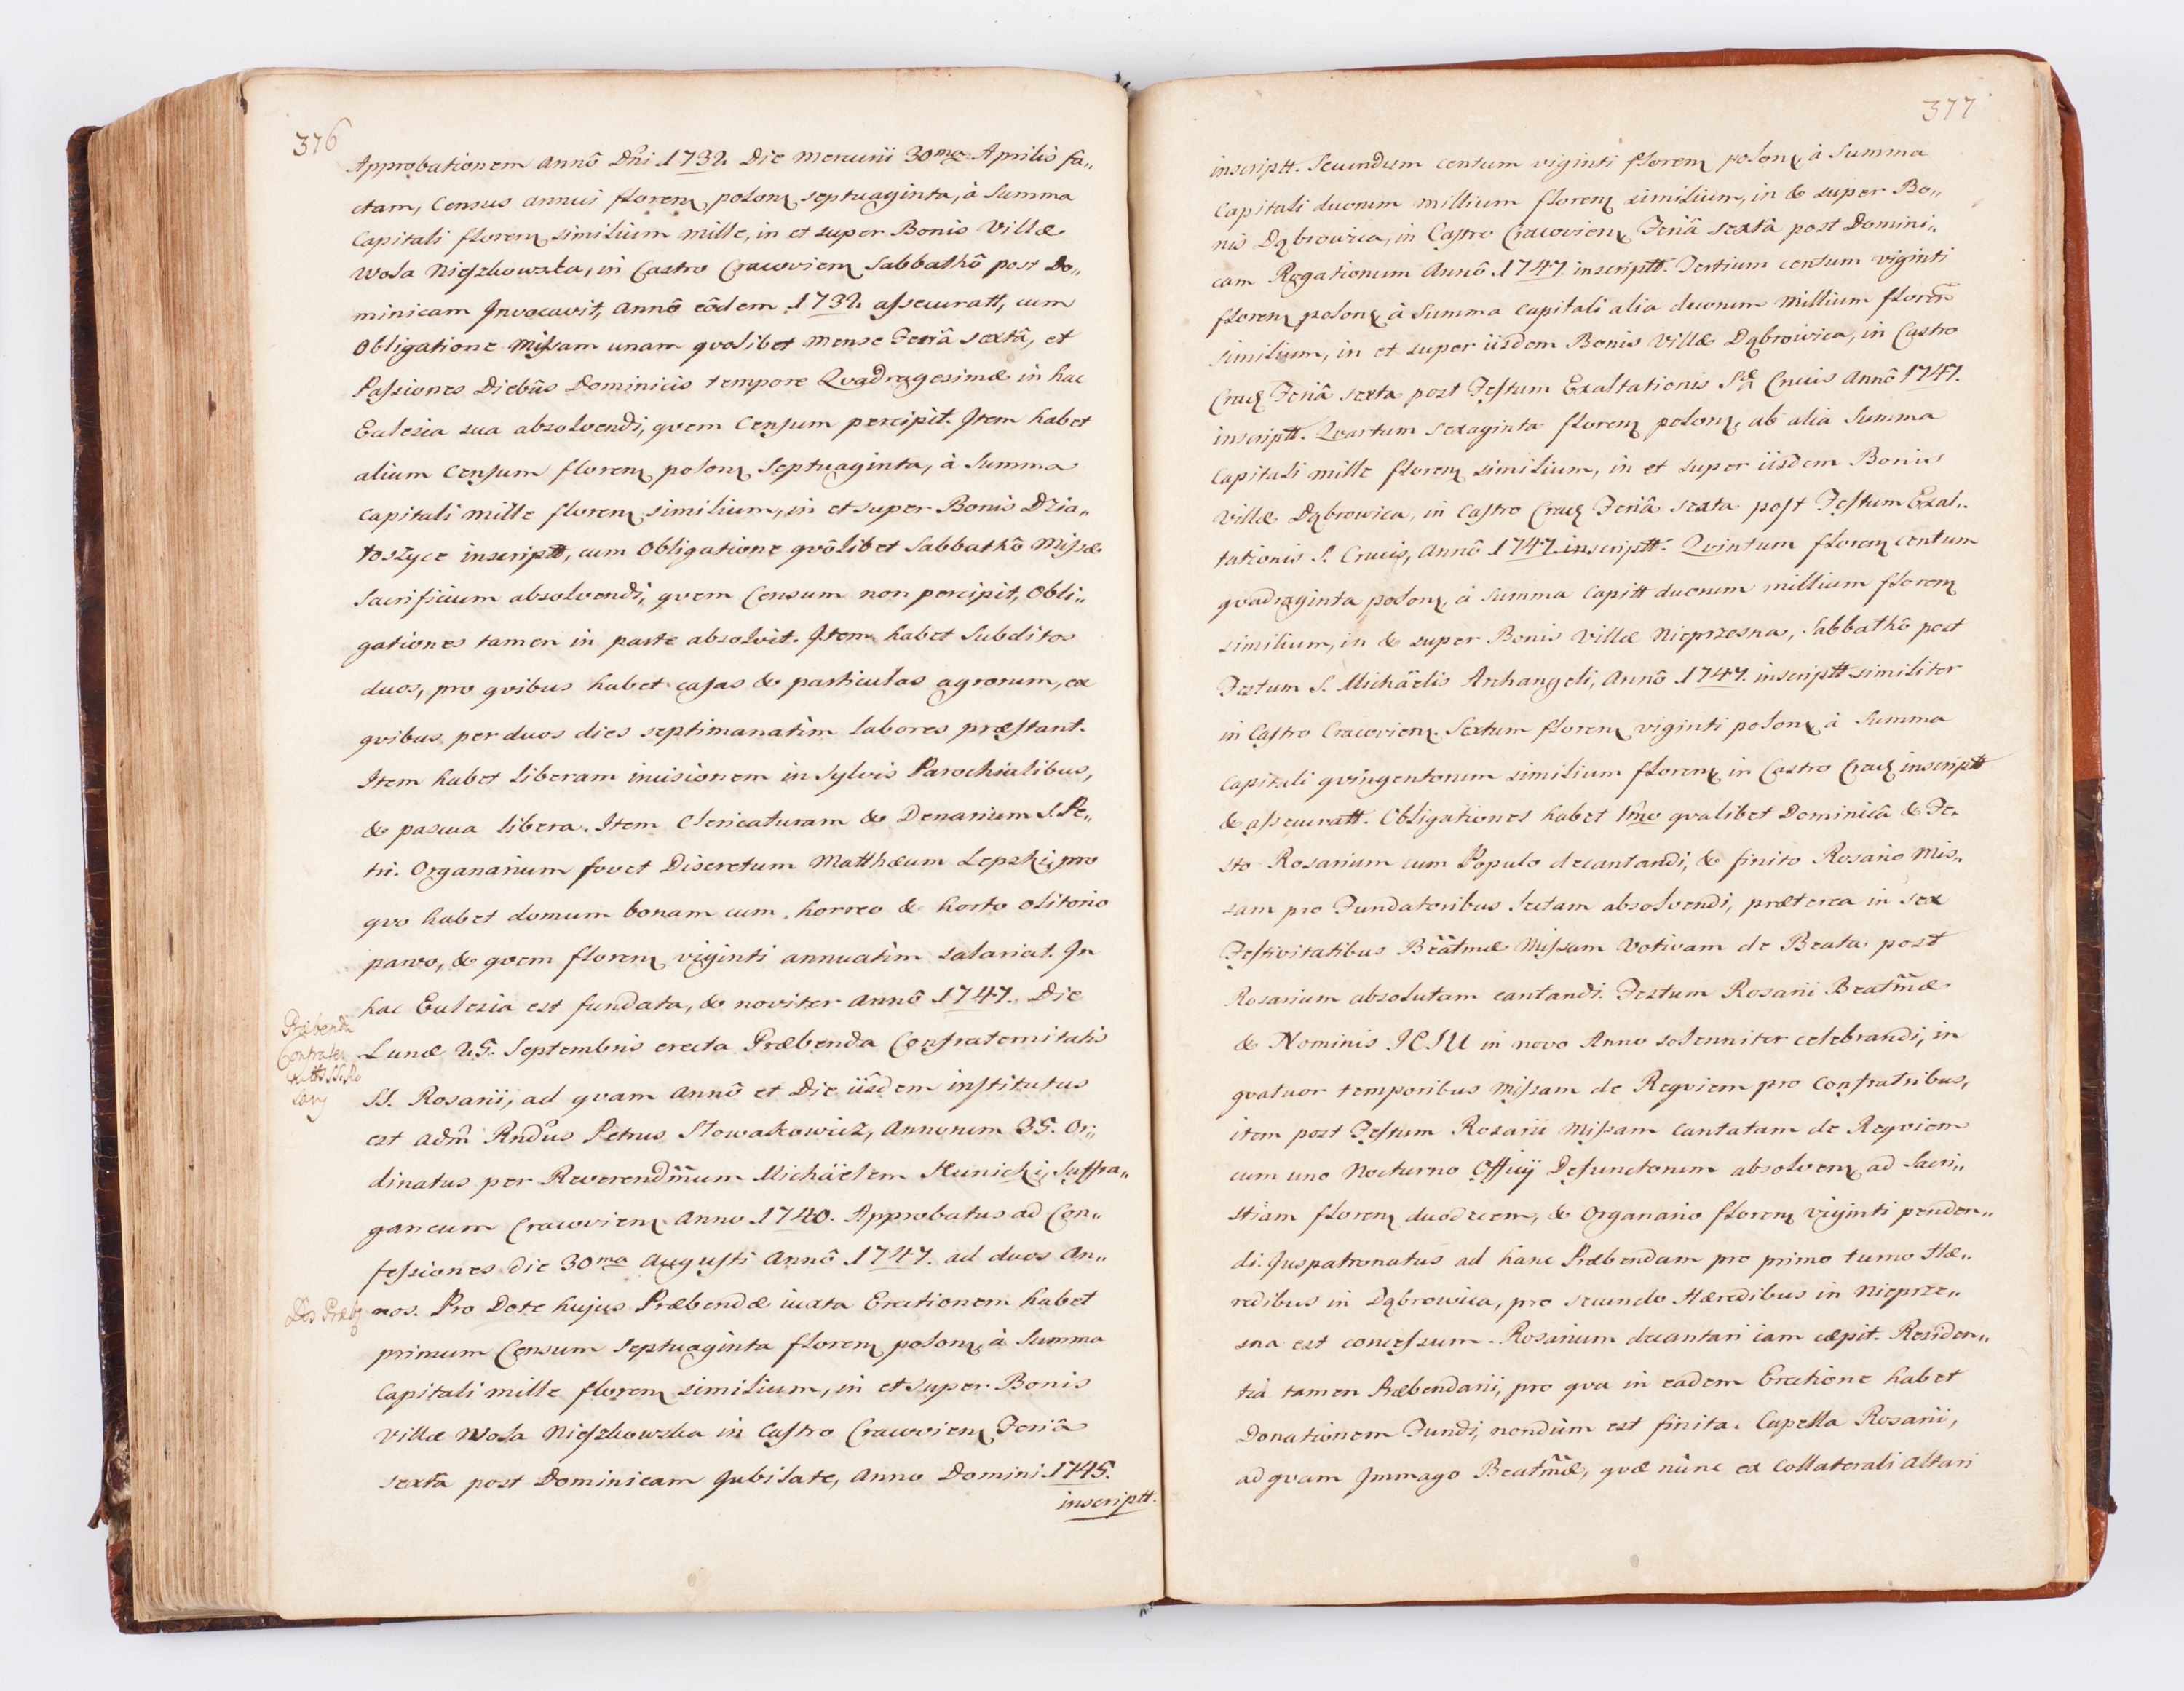 376
Approbationem Annô Dñi 1732. Die Mercurii 30ma Aprilis fa„
ctam, Census annui floren polon septuaginta, à Summa
Capitali floren similium mille, in et super Bonis Villæ
Wola Nieszkowska, in Castro Cracovien Sabbathô post Do„
minicam Invocavit, Annô eôdem 1732. assecuratt, cum
Obligatione Missam unam qvolibet Mense Feriâ sextâ, et
Passiones Diebûs Dominicis tempore Qvadragesimæ in hac
Ecclesia sua absolvendi, qvem Censum percipit. Item habet
alium Censum floren polon Septuaginta, à Summa
Capitali Mille floren similium, in et super Bonis Dzia„
toszyce inscriptt, cum Obligatione qvôlibet Sabbathô Missæ
Sacrificium absolvendi, qvem Censum non percipit, Obli„
gationes tamen in parte absolvit. Item habet Subditos
duos, pro qvibus habet casas & particulas agrorum, ex
qvibus per duos dies septimanatim labores præstant.
Item habet liberam incisionem in Sylvis Parochialibus,
& pascua libera. Item Clericaturam & Denarium S. Pe„
tri. Organarium fovet Discretum Matthæum Lepski, pro
qvo habet domum bonam cum horreo & horto olitorio
parvo, & qvem floren viginti annuatim salariat. In
hac Ecclesia est fundata, & noviter Annô 1747. Die
Lunæ 25. Septembris erecta Præbenda Confraternitatis
SS. Rosarii, ad qvam Annô et Die iisdem institutus
est Adm Rndus Petrus Słowakowicz, Annorum 35. Or„
dinatus per Reverendm̃um Michäelem Kunicki, Suffra„
ganeum Cracovien Anno 1740. Approbatus ad Con„
fessiones die 30ma Augusti Annô 1747. ad duos An„
nos. Pro Dote hujus Præbendæ iuxta Erectionem habet
primum Censum Septuaginta floren polon, à Summa
Capitali mille floren similium, in et super Bonis
Villæ Wola Nieszkowska in Castro Cracovien Feriâ
sextâ post Dominicam Jubilate, Anno Domini 1745.
inscriptt.
Præbenda
Confrater
SS. Ro
Dos Præb
377
inscriptt. Secundum centum viginti floren polon, à Summa
Capitali duorum millium floren similium, in & super Bo„
nis Dąbrowica, in Castro Cracovien Feriâ sextâ post Domini„
cam Rogationum Annô 1747. inscriptt. Tertium centum viginti
floren polon à Summa Capitali alia duorum Millium floreñ
similium, in et super iisdem Bonis Villæ Dąbrowica, in Castro
Crac Feriâ sexta post Festum Exaltationis Sæ Crucis Annô 1747.
inscriptt. Qvartum sexaginta floren polon, ab alia Summa
Capitali mille floren similium, in et super iisdem Bonis
Villæ Dąbrowica, in Castro Crac Feriâ sexta post Festum Exal„
tationis S. Crucis, Annô 1747. inscriptt. Qvintum floren centum
qvadraginta polon, à Summa Capitt duorum millium floren
similium, in & super Bonis Villæ Nieprzesna, Sabbathô post
Festum S. Michäelis Archangeli, Annô 1747. inscriptt similiter
in Castro Cracovien. Sextum floren viginti polon à Summa
Capitali qvingentorum similium floren in Castro Crac inscriptt
& assecuratt. Obligationes habet 1mo qvalibet Dominicâ & Fe„
sto Rosarium cum Populo decantandi, & finito Rosario Mis„
sam pro Fundatoribus lectam absolvendi, præterea in sex
Festivitatibus Beatmæ Missam Votivam de Beata post
Rosarium absolutam cantandi. Festum Rosarii Beatm̃æ
& Nominis JESU in novo Anno solenniter celebrandi, in
qvatuor temporibus Missam de Reqviem pro Confratribus,
item post Festum Rosarii Missam Cantatam de Reqviem
cum uno Nocturno Officij Defunctorum absolven, ad Sacri„
stiam floren duodecem, & Organario floren viginti penden„
di. Juspatronatus ad hanc Præbendam pro primo turno Hæ„
redibus in Dąbrowica, pro secundo Hæredibus in Nieprze„
sna est concessum. Rosarium decantari iam cæpit. Residen„
tia tamen Præbendarii, pro qva in eadem Erectione habet
Donationem Fundi, nondùm est finita. Capella Rosarii,
ad qvam Jmmago Beatm̃æ, qvæ nûnc ex Collaterali Altari